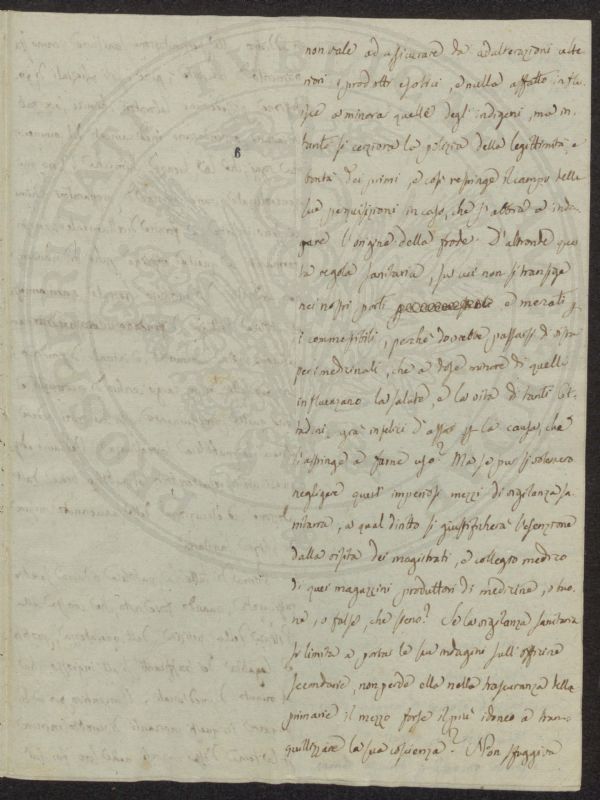 non vale ad assicurare da adulterazioni ulte
riori i prodotti esotici, e nulla affatto influ
isce a minorar quelle degl'indigeni, ma in
tanto si cerziora la polizia della legittimità, e
bontà dei primi, e così respinge il campo delle
sue perquisizioni in caso, che si abbia a inda
gare l'origine della frode. D'altronde ques
ta regola sanitaria, su cui non si transige
nei nostri porti e mercati p
i commestibili, perché dovrebbe passarsi di sopra
pei medicinali, che a dose minore di quelli
influenzano la salute, e la vita di tanti Cit
tadini, già infelici d'assai p la causa, che
li spinge a farne uso? Ma se pur si volessero
negligere questi imperiosi mezzi di vigilanza sa
nitaria, a qual diritto si giustificherà l'esenzione
dalla visita dei magistrati, e collegio medico
di quei magazzini produttori di medicine, o buo
ne, o false, che sieno? Se la vigilanza sanitaria
si limita a portar le sue indagini sull'officine
secondarie, non perde ella nella trascuranza delle
primarie il mezzo forse il più idoneo a tran
quillizzare la sua coscienza? Non sfuggiva
6